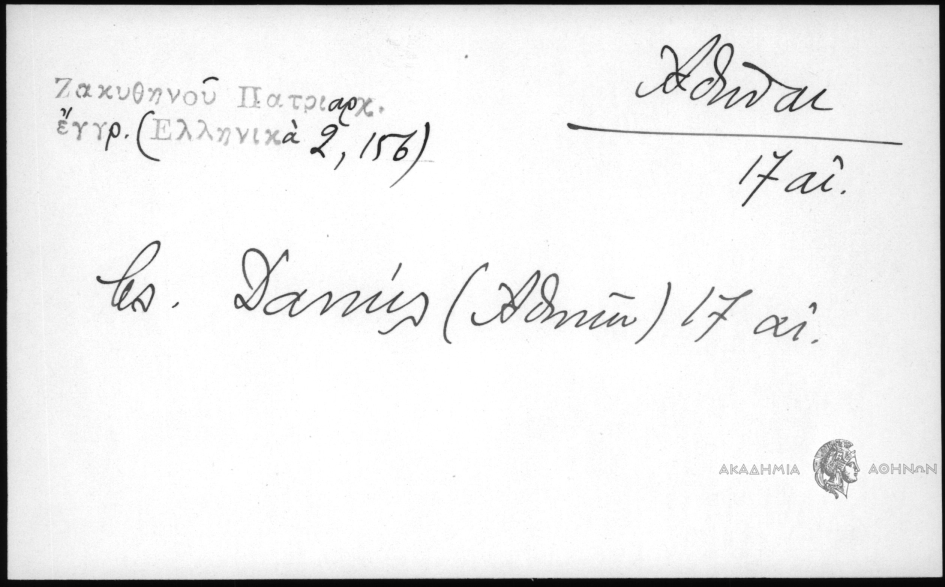 Ζακυθηνοῦ Πατριαρχ.
ἔγγρ. (Ἑλληνικὰ 2, 156)
Ἀθῆναι
17 αἰ.
(Ἀθηνῶν) 17 αἰ.
ΑΚΑΔΗΜΙΑ ΑΘΗΝΩΝ